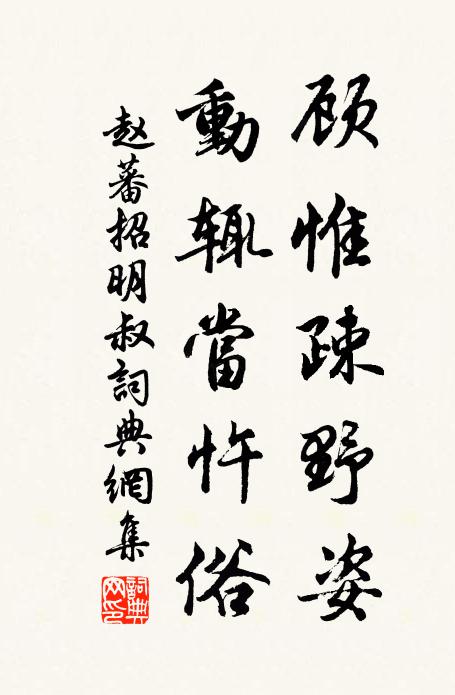 顾惟疎野姿
動辄當忤俗
赵蕃招明叔詞典網集
詞典網印